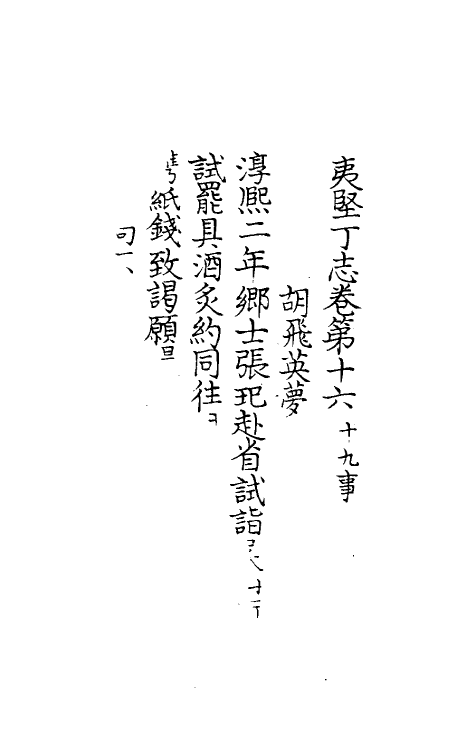 夷堅丁志卷第十六 十九事
胡飛英夢
淳熙二年鄉士張玘赴省試詣
試罷具酒炙約同往
紙錢致謁願